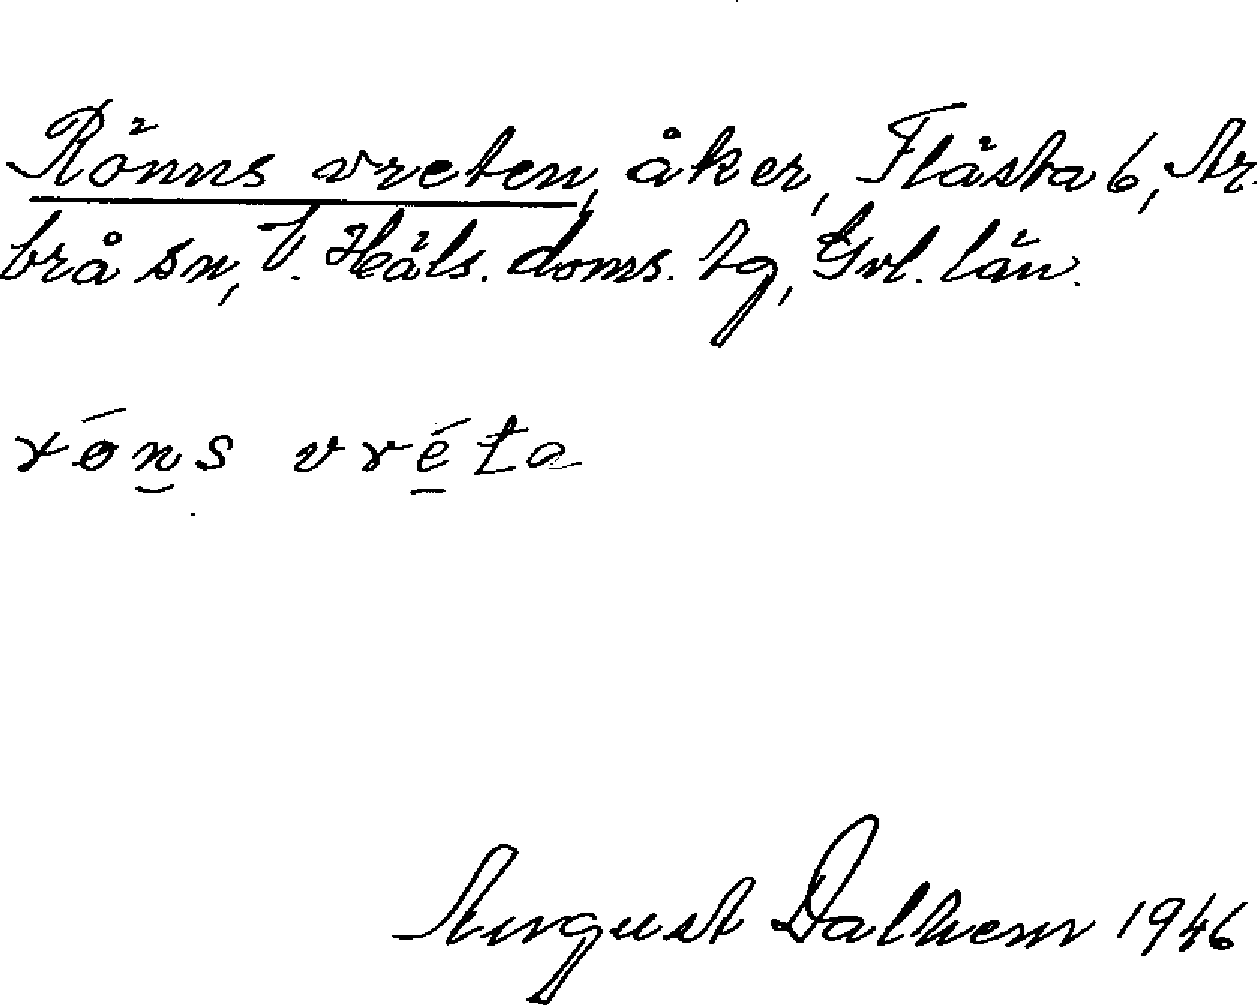 Rönns vreten, åker, Flästa 6, Ar-
brå sn, V. Häls. doms. tg, Gvl. län.
röns vréta
August Dalhem 1946